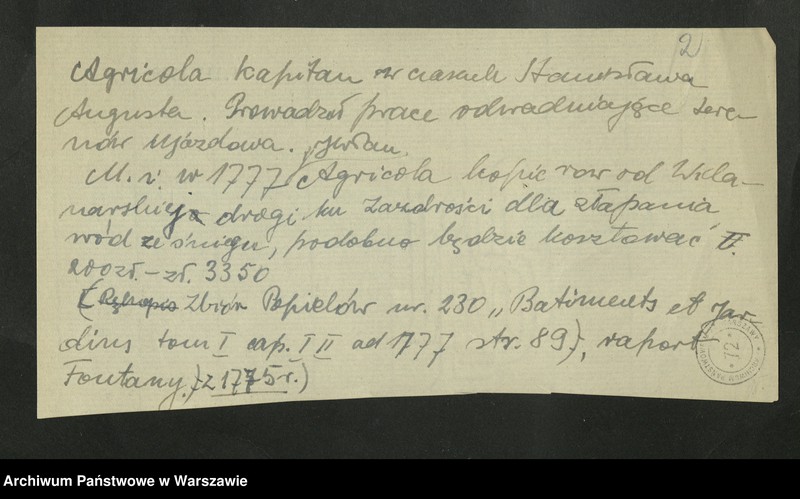 2
Agricola kapitan w czasach Stanisława
Augusta. Prowadził prace odwadniające tere-
nów Ujazdowa.
M. i. w 1777 Agricola kopie row od Wila-
nowskiej drogi ku Zazdrości dla złapania
wód ze śniegu, podobno będzie kosztować #.
200 zł. - zł. 3350
(Zbiór Popielów nr. 230 „Batiments et Jar-
dins tom I cap. I II ad 1777 str. 89), raport
Fontany (z 1775 r.)
72
Archiwum Państwowe w Warszawie